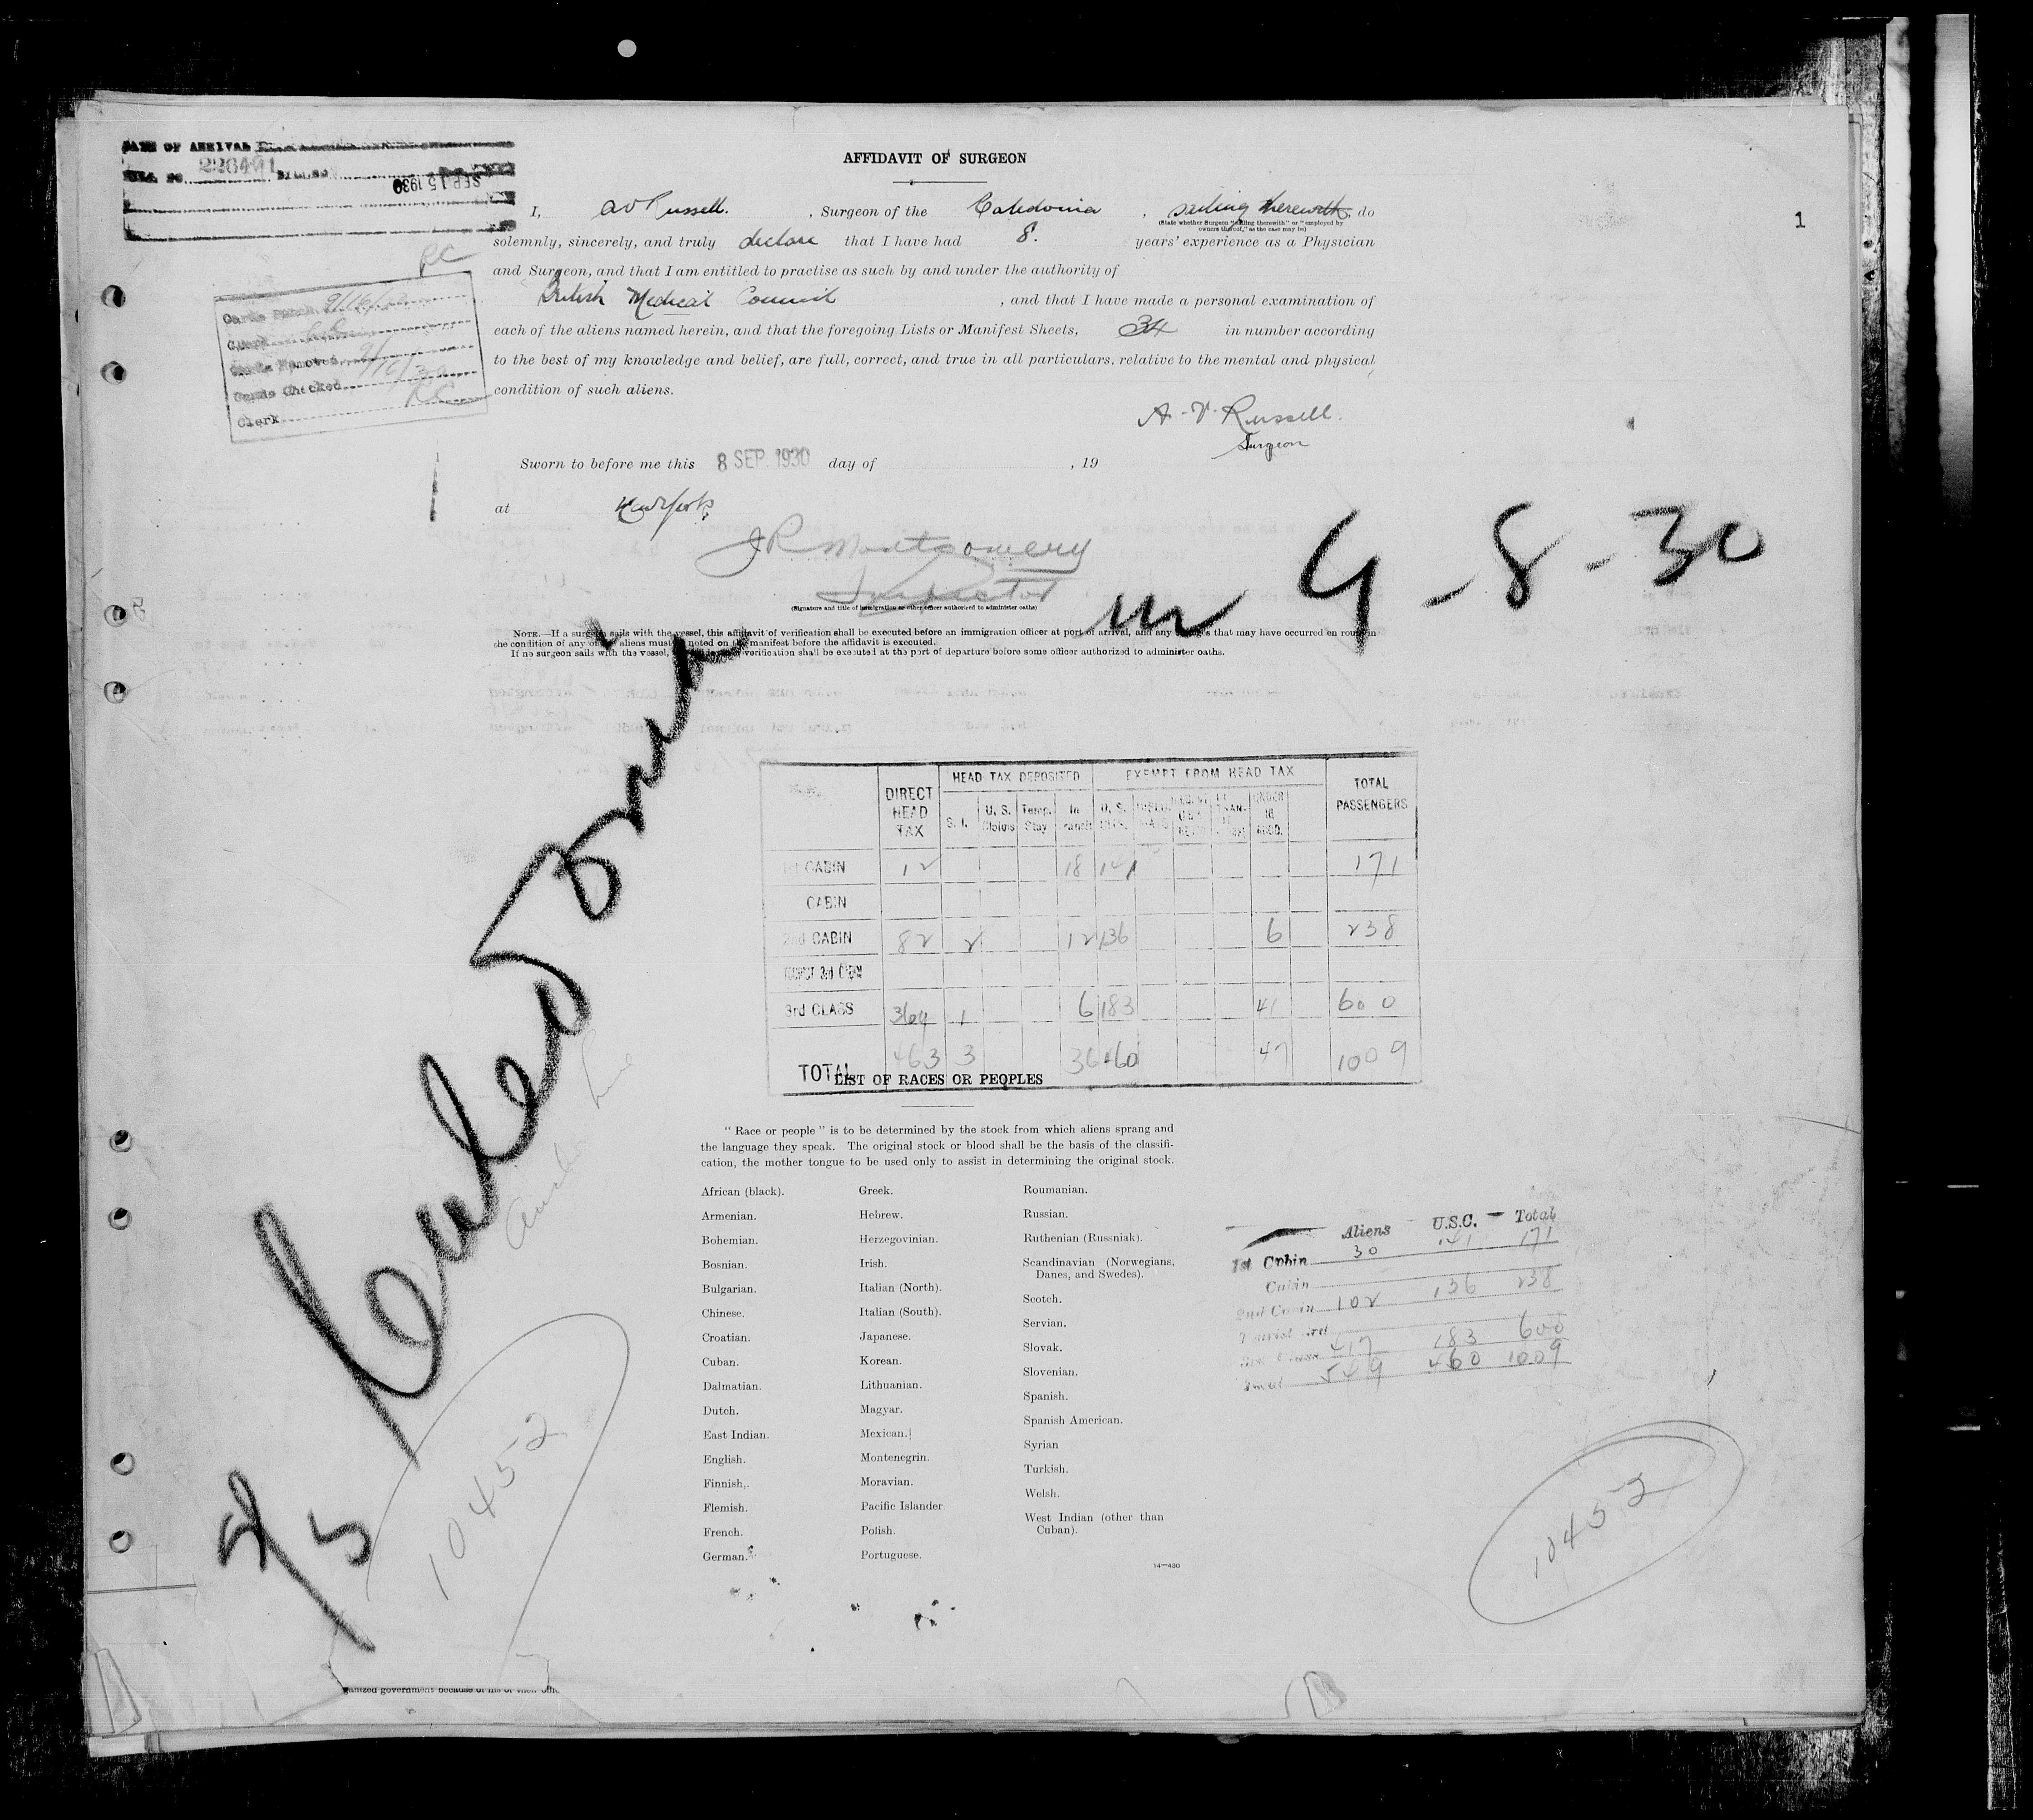 DATE OF ARRIVAL
226491
SEP 15 1930
RC
Cards Punch. 9/16/30
Clerk
Cards Removed 9/16/30
Cards Checked RC
Clerk
1
AFFIDAVIT OF SURGEON
I, A V Russell. , Surgeon of the Caledonia , sailing therewith, do
(State whether Surgeon "sailing therewith" or "employed by
owners thereof," as the case may be)
solemnly, sincerely, and truly declare that I have had 8. years' experience as a Physician
and Surgeon, and that I am entitled to practise as such by and under the authority of
British Medical Council , and that I have made a personal examination of
each of the aliens named herein, and that the foregoing Lists or Manifest Sheets, 34 in number according
to the best of my knowledge and belief, are full, correct, and true in all particulars, relative to the mental and physical
condition of such aliens.
A. V. Russell.
Surgeon
Sworn to before me this 8 SEP. 1930 day of , 19
at New York
J R Montgomery
Inspector
(Signature and title of immigration or other officer authorized to administer oaths)
m 9-8-30
NOTE.—If a surgeon sails with the vessel, this affidavit of verification shall be executed before an immigration officer at port of arrival, and any changes that may have occurred en route in
the condition of any of the aliens must be noted on the manifest before the affidavit is executed.
If no surgeon sails with the vessel, verification shall be executed at the port of departure before some officer authorized to administer oaths.
S/S Caledonia
Anchor Line
DIRECT HEAD TAX HEAD TAX DEPOSITED EXEMPT FROM HEAD TAX TOTAL PASSENGERS
S. I. U. S. Temp. Stay In U. S. UNDER 16
1st CABIN 12 18 141 171
CABIN
2nd CABIN 82 2 12 136 6 238
TOURIST 3rd CABIN
3rd CLASS 369 1 6 183 41 600
TOTAL 463 3 36 460 47 1009
LIST OF RACES OR PEOPLES
"Race or people" is to be determined by the stock from which aliens sprang and
the language they speak. The original stock or blood shall be the basis of the classifi-
cation, the mother tongue to be used only to assist in determining the original stock.
African (black).
Armenian.
Bohemian.
Bosnian.
Bulgarian.
Chinese.
Croatian.
Cuban.
Dalmatian.
Dutch.
East Indian.
English.
Finnish.
Flemish.
French.
German.
Greek.
Hebrew.
Herzegovinian.
Irish.
Italian (North).
Italian (South).
Japanese.
Korean.
Lithuanian.
Magyar.
Mexican.
Montenegrin.
Moravian.
Pacific Islander
Polish.
Portuguese.
Roumanian.
Russian.
Ruthenian (Russniak).
Scandinavian (Norwegians,
Danes, and Swedes).
Scotch.
Servian.
Slovak.
Slovenian.
Spanish.
Spanish American.
Syrian
Turkish.
Welsh.
West Indian (other than
Cuban).
14—430
Aliens U.S.C. Total
1st Cabin 30 141 171
Cabin
2nd Cabin 102 136 238
Tourist 3rd
417 183 600
549 460 1009
10452
10452